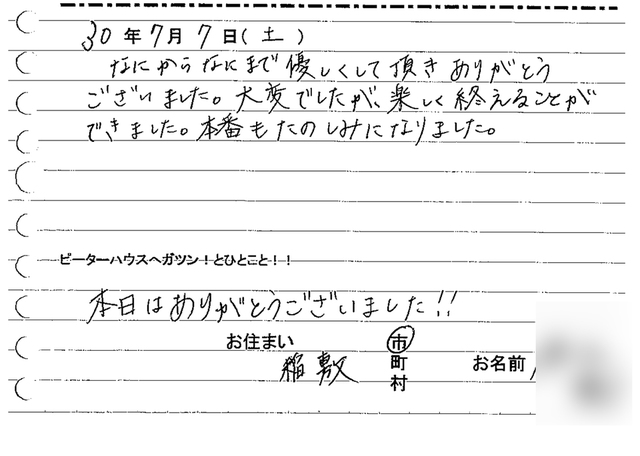 30年7月7日(土)
なにからなにまで優しくして頂きありがとう
ございました。大変でしたが、楽しく終えることが
できました。本番もたのしみになりました。
ピーターハウスへガツン！とひとこと！！
本日はありがとうございました!!
お住まい 稲敷 市 町 村 お名前